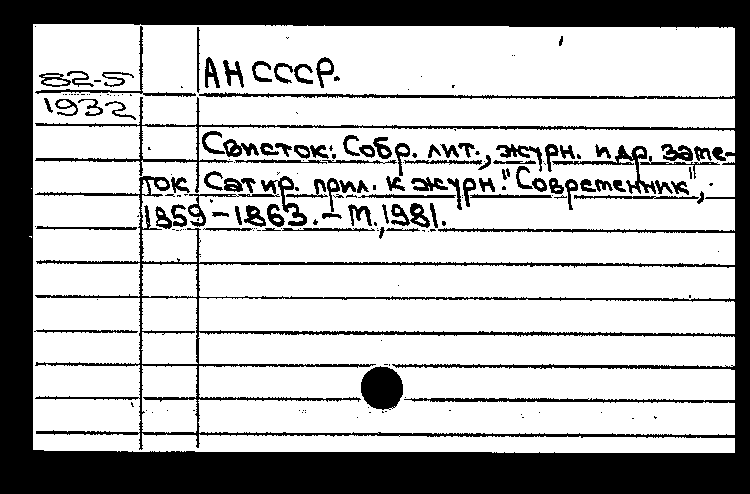 82-5
1932
АН СССР.
Свисток: Собр. лит., журн. и др. заме-
ток Сатир. прил. к журн. "Современник",
1859-1863. - М., 1981.